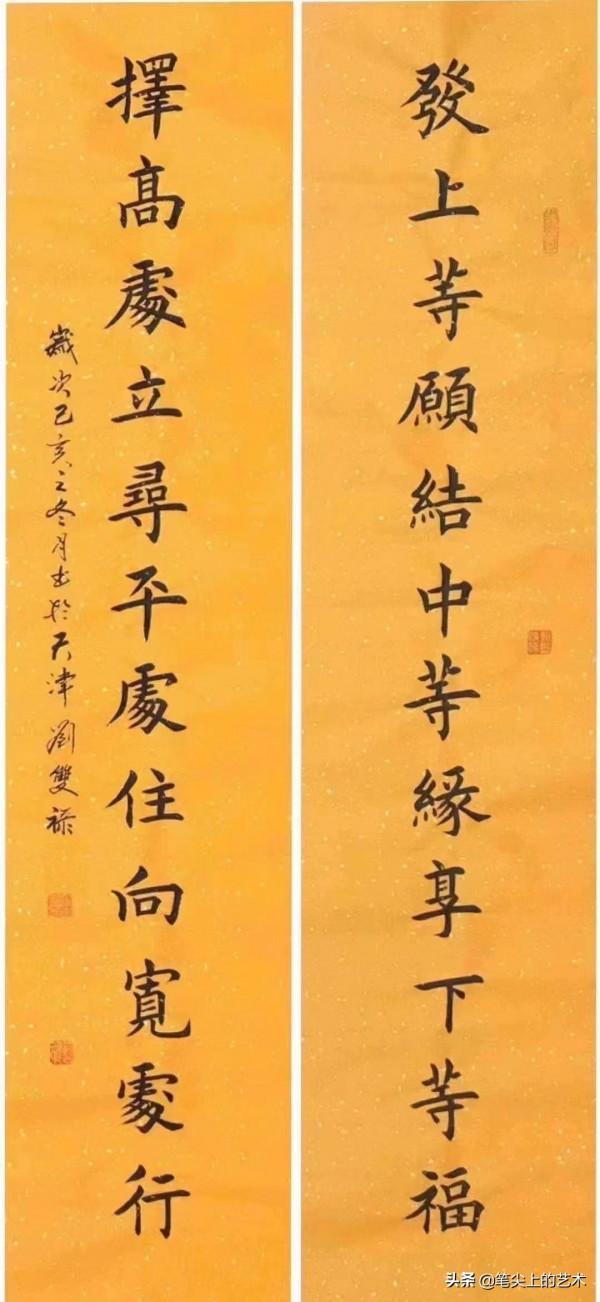 發上等願結中等緣享下等福
擇高處立尋平處住向寬處行
歲次己亥之冬月書於天津劉雙祿
头条 @笔尖上的艺术